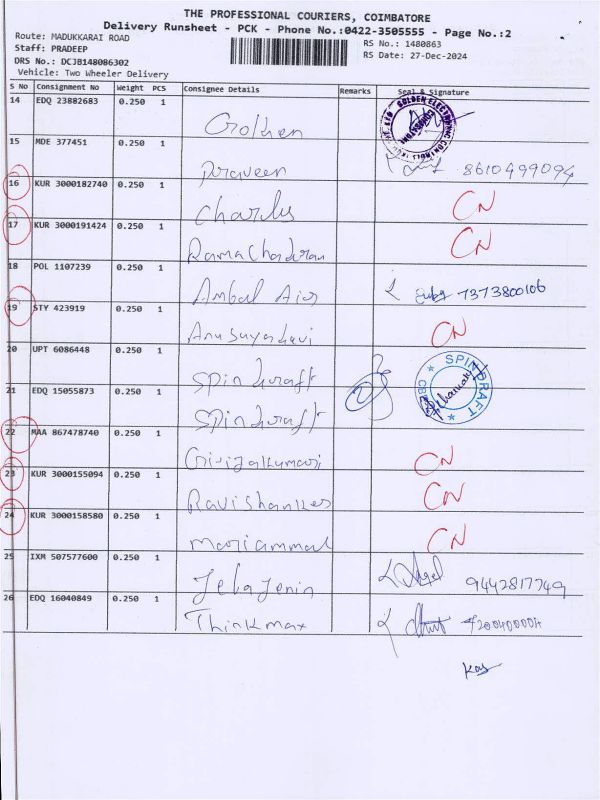 THE PROFESSIONAL COURIERS, COIMBATORE
Delivery Runsheet - PCK - Phone No.:0422-3505555 - Page No.:2
Route: MADUKKARAI ROAD
RS No.: 1480863
Staff: PRADEEP
RS Date: 27-Dec-2024
DRS No.: DCJB148086302
Vehicle: Two Wheeler Delivery
S No Consignment No Weight PCS Consignee Details Remarks Seal & Signature
14 EDQ 23882683 0.250 1 Golden
15 MDE 377451 0.250 1 Praveen 8610499094
16 KUR 3000182740 0.250 1 Charles CN
17 KUR 3000191424 0.250 1 Ramachandran CN
18 POL 1107239 0.250 1 Ambal Aios 7373800106
19 STY 423919 0.250 1 Anusuyadevi CN
20 UPT 6086448 0.250 1 Spindraft SPINDRAFT
21 EDQ 15055873 0.250 1 Spindraft
22 MAA 867478740 0.250 1 Girijakumari CN
23 KUR 3000155094 0.250 1 Ravishanker CN
24 KUR 3000158580 0.250 1 Mariammal CN
25 IXM 507577600 0.250 1 Jeba Jenin 9442817749
26 EDQ 16040849 0.250 1 Thinkmax